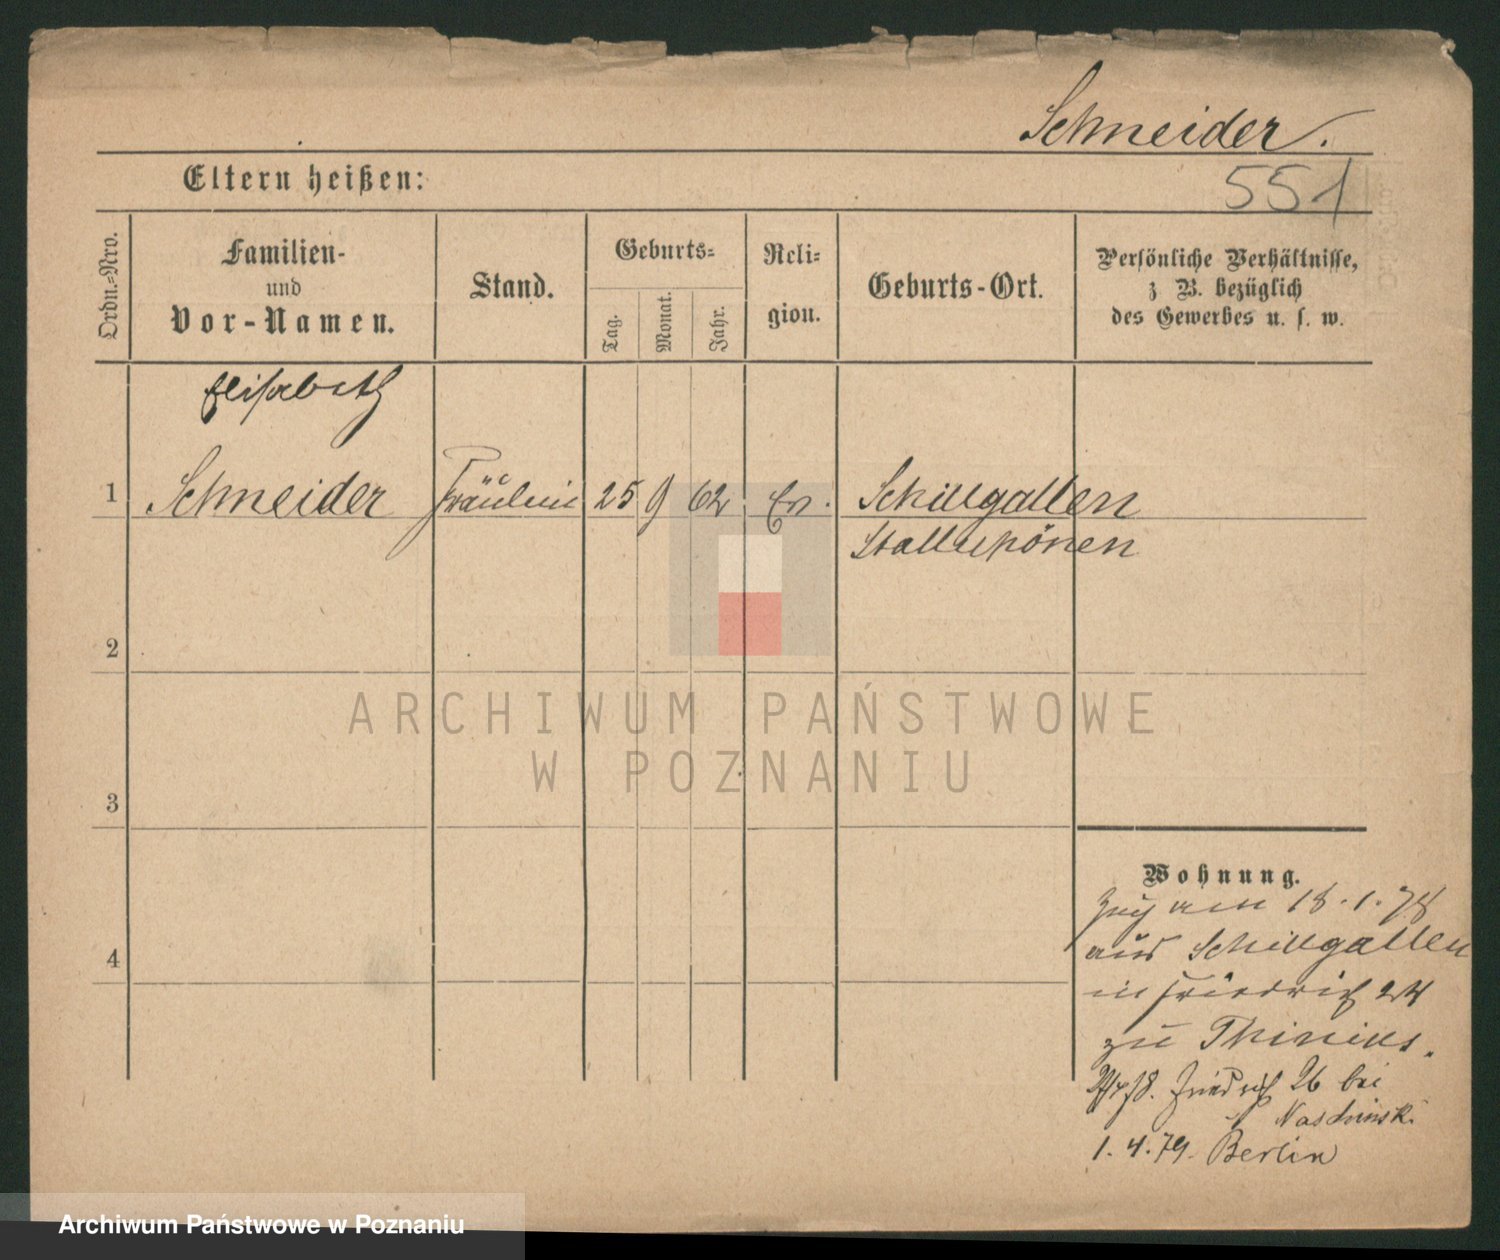 Schneider.
Eltern heißen:
551
Ordn.=Nro.
Familien-
und
Vor-Namen.
Stand.
Geburts=
Tag.
Monat.
Jahr.
Reli=
gion.
Geburts-Ort.
Persönliche Verhältnisse,
z B. bezüglich
des Gewerbes u. s. w.
Elisabeth
1 Schneider Fräulein 25 9 62 Ev. Schillgallen
Stallupönen
2
3
4
ARCHIWUM PAŃSTWOWE
W POZNANIU
Wohnung.
Zug am 18.1.78
aus Schillgallen
in Friedrich 24
zu Thinius.
78. Friedrich 26 bei
1.4.79. Berlin
Archiwum Państwowe w Poznaniu